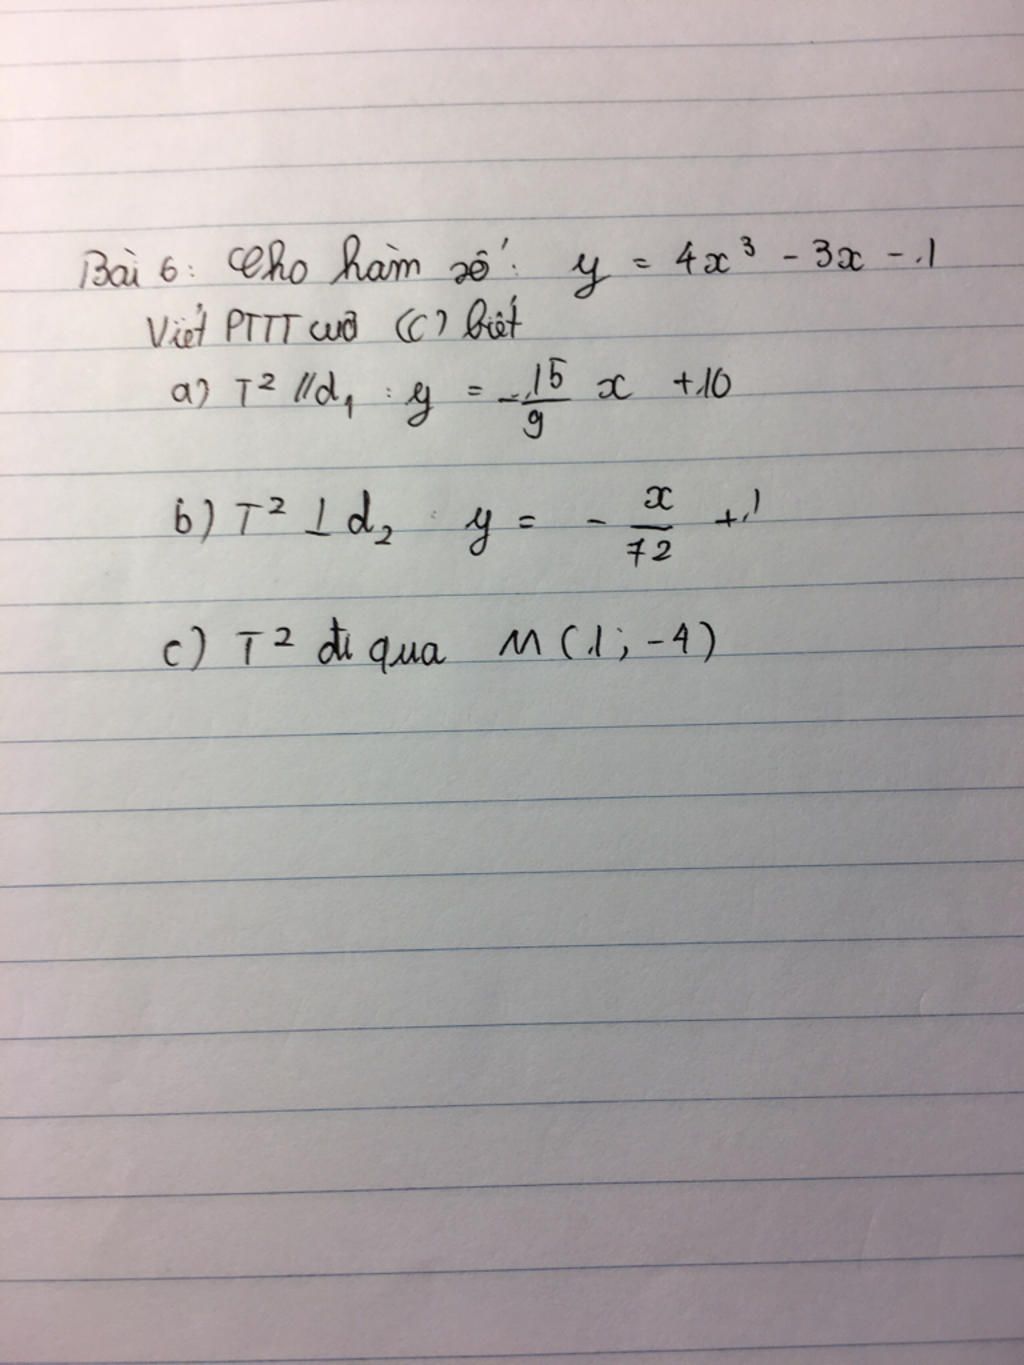 Bài 6: Cho hàm số: y = 4x³ - 3x - 1
Viết PTTT của (C) biết
a) T² // d₁ : y = -15/9 x + 10
b) T² ⊥ d₂ : y = - x/72 + 1
c) T² đi qua M (1; -4)